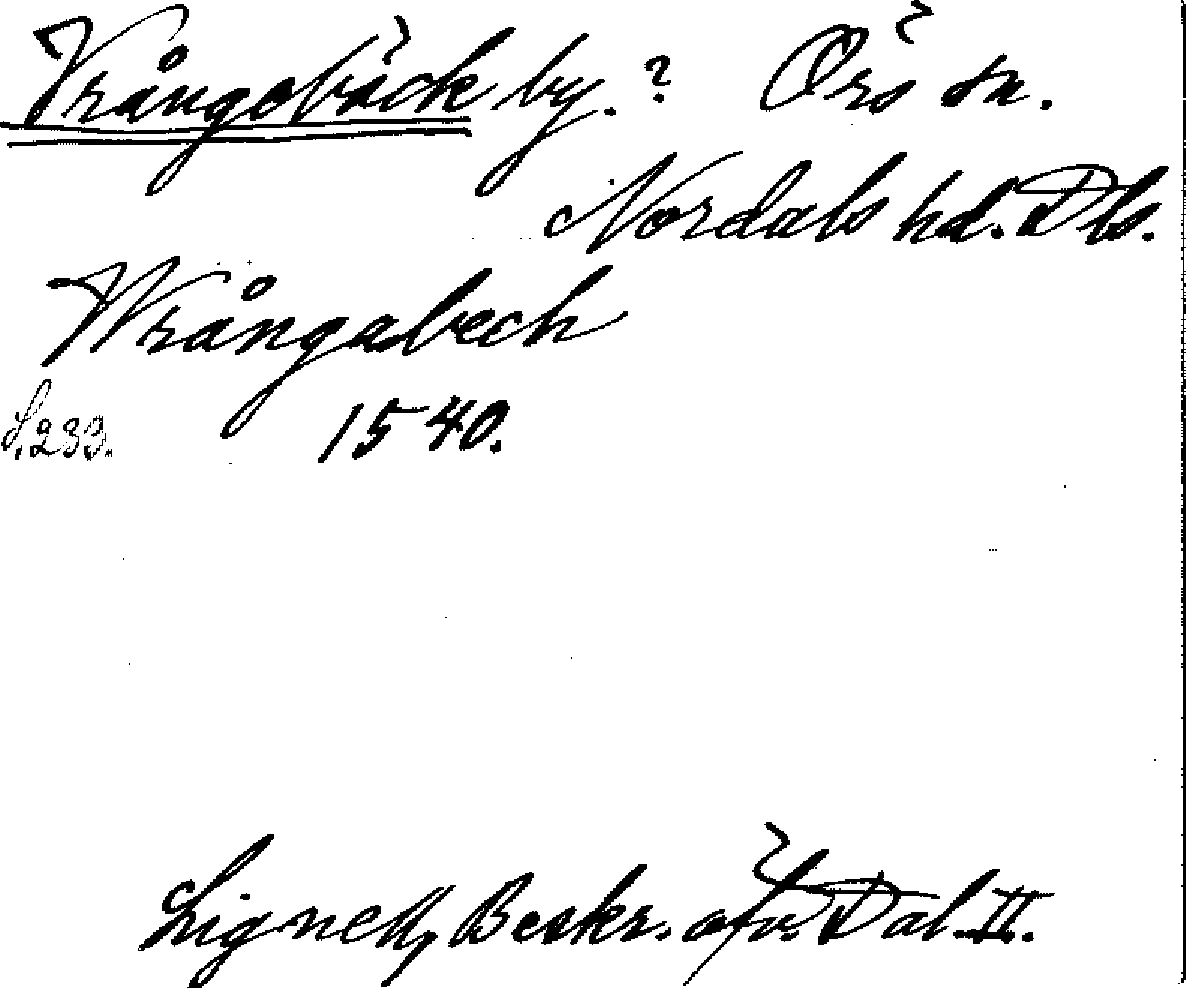 Vrångebäck by.? Örs sn.
Nordals hd. Dls.
Wrångabech
S. 233. 1540.
Lignell, Beskr. öfv. Dal. II.